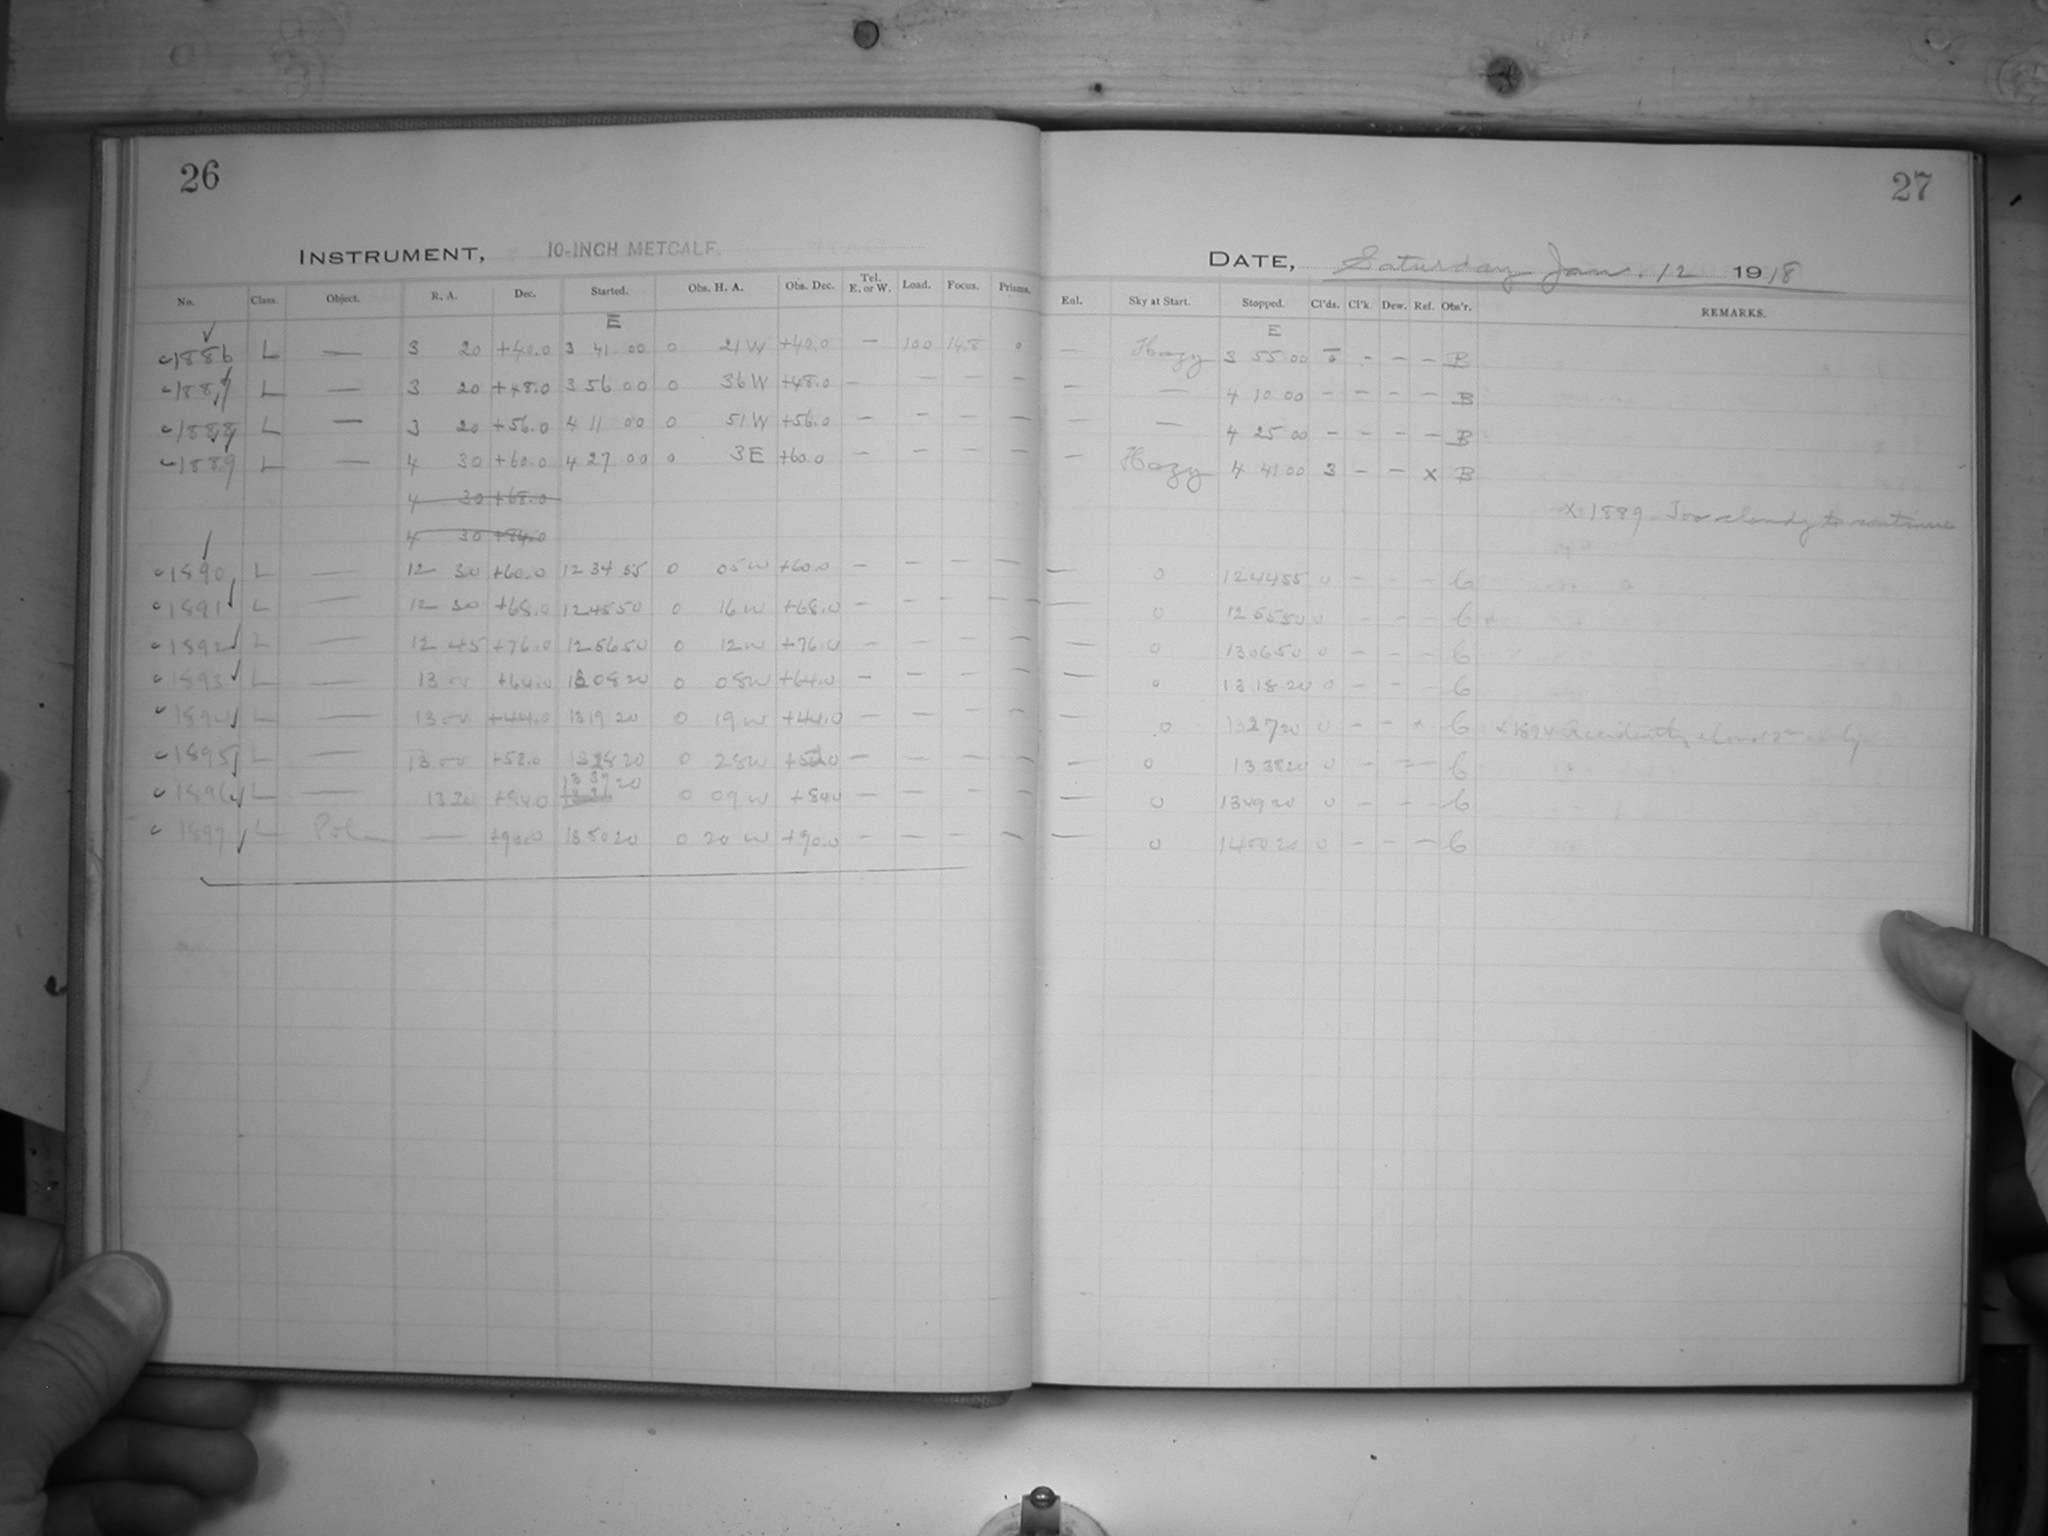 26
INSTRUMENT, 10-INCH METCALF.
No. Class. Object. R. A. Dec. Started. Obs. H. A. Obs. Dec. Tel. E. or W. Load. Focus. Prisms.
E
c1886 L — 3 20 +40.0 3 41 00 0 21 W +40.0 — 100 14.8 0
c1887 L — 3 20 +48.0 3 56 00 0 36 W +48.0 — — — —
c1888 L — 3 20 +56.0 4 11 00 0 51 W +56.0 — — — —
c1889 L — 4 30 +60.0 4 27 00 0 3 E +60.0 — — — —
4 30 +68.0
4 30 +84.0
c1890 L — 12 30 +60.0 12 34 55 0 05 W +60.0 — — — —
c1891 L — 12 30 +68.0 12 45 50 0 16 W +68.0 — — — —
c1892 L — 12 45 +76.0 12 56 50 0 12 W +76.0 — — — —
c1893 L — 13 00 +64.0 13 08 20 0 08 W +64.0 — — — —
c1894 L — 13 00 +44.0 13 19 20 0 19 W +44.0 — — — —
c1895 L — 13 00 +52.0 13 28 20 0 28 W +52.0 — — — —
c1896 L — 13 30 +84.0 13 39 20 0 09 W +84.0 — — — —
c1897 L Pole — +90.0 13 50 20 0 20 W +90.0 — — — —
27
DATE, Saturday Jan. 12 1918
Enl. Sky at Start. Stopped. Cl'ds. Cl'k. Dew. Ref. Obs'r. REMARKS.
E
— Hazy 3 55 00 0 — — — B
— — 4 10 00 — — — — B
— — 4 25 00 — — — — B
— Hazy 4 41 00 3 — — X B
X 1889 Too cloudy to continue
— 0 12 44 55 0 — — — C
— 0 12 55 50 0 — — — C
— 0 13 06 50 0 — — — C
— 0 13 18 20 0 — — — C
— 0 13 27 20 0 — — x C x 1894 Accidently closed early
— 0 13 38 20 0 — — — C
— 0 13 49 20 0 — — — C
— 0 14 00 20 0 — — — C